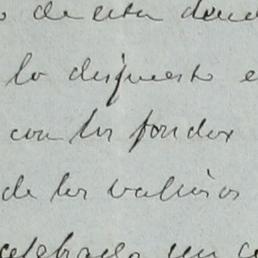 de esta
lo dispuesto e
con los fondos
de los valiosos
celebrado un